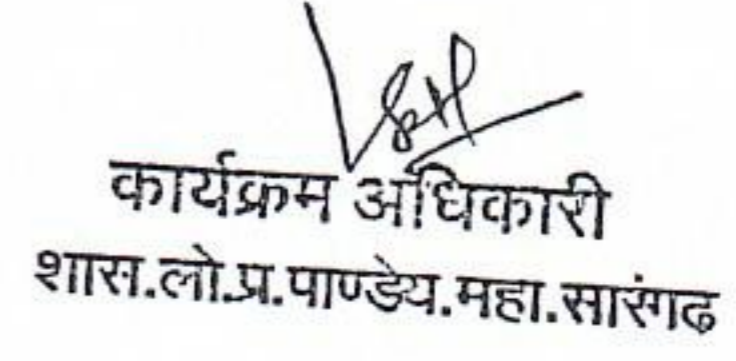 कार्यक्रम अधिकारी
शास.लो.प्र.पाण्डेय.महा.सारंगढ